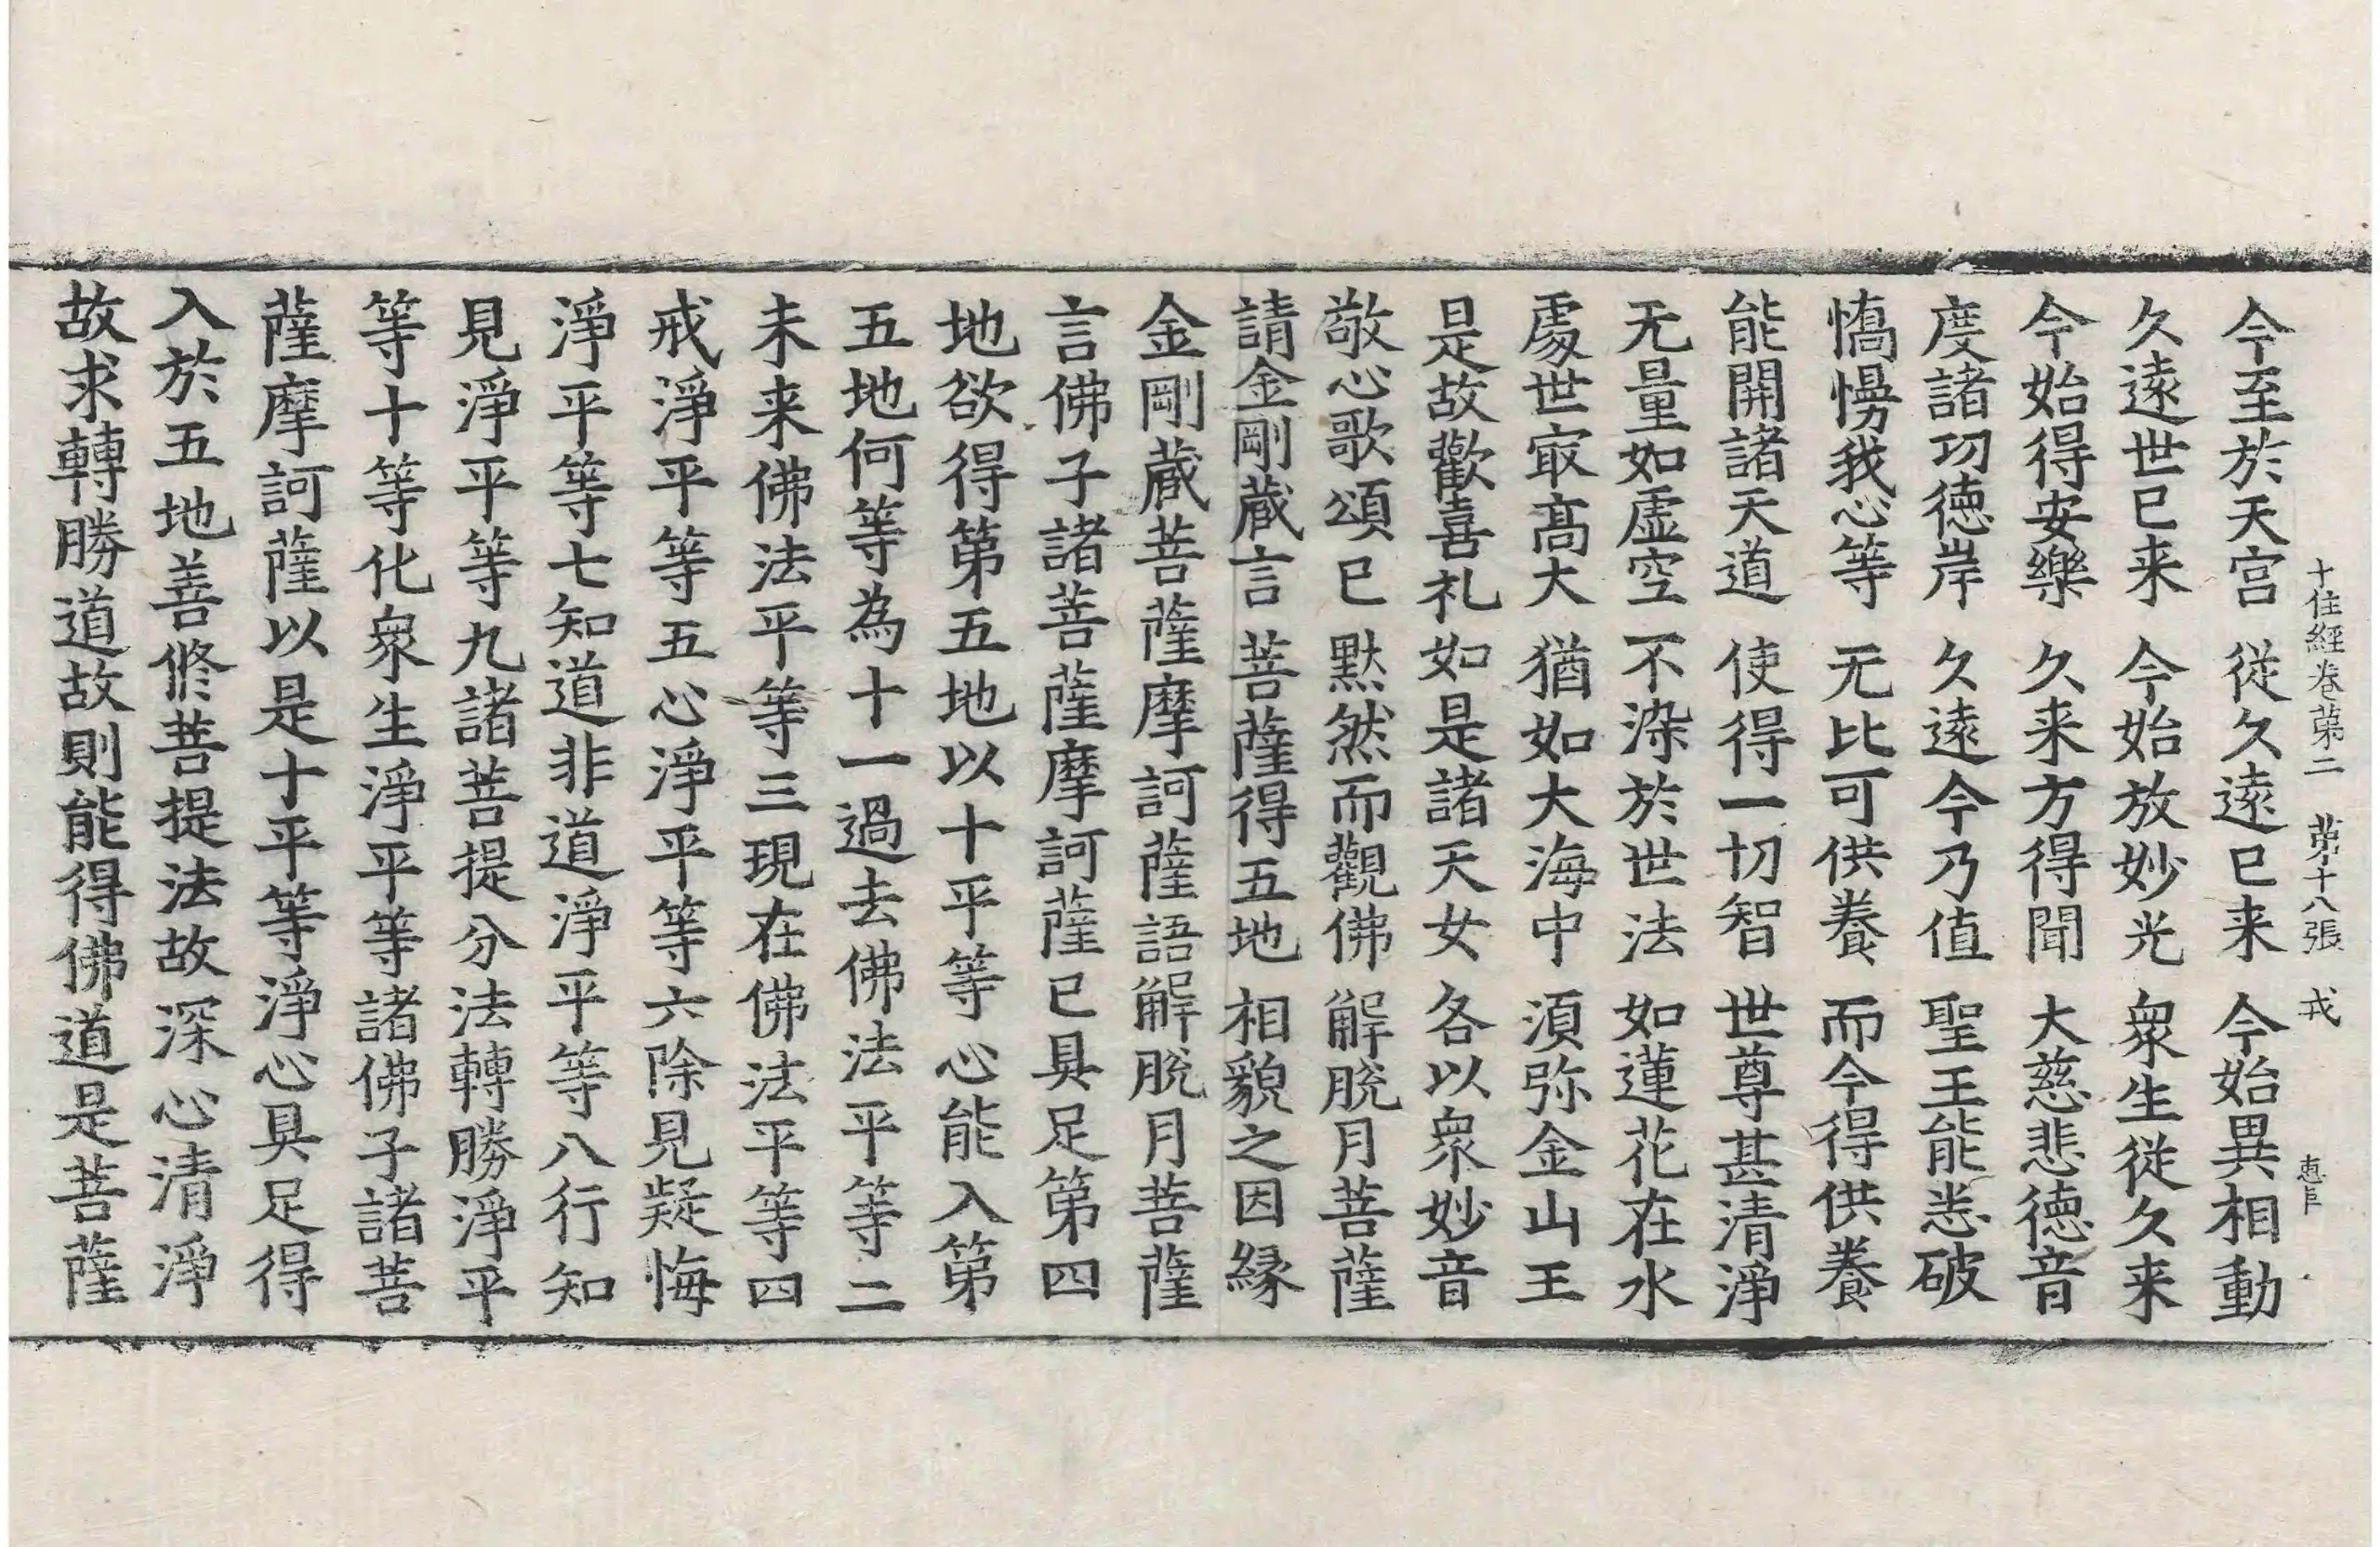 十住經卷第二 第十八張 戎
今至於天宮 從久遠已来 今始異相動
久遠世已来 今始放妙光 衆生従久来
今始得安樂 久来方得聞 大慈悲德音
度諸功德岸 久遠今乃值 聖王能悉破
憍慢我心等 无比可供養 而今得供養
能開諸天道 使得一切智 世尊甚清淨
无量如虛空 不染於世法 如蓮花在水
處世㝡高大 猶如大海中 湏弥金山王
是故歡喜礼 如是諸天女 各以衆妙音
敬心歌頌已 黙然而觀佛 解脫月菩薩
請金剛蔵言 菩薩得五地 相貌之因縁
金剛蔵菩薩摩訶薩語解脫月菩薩
言佛子諸菩薩摩訶薩已具足第四
地欲得第五地以十平等心能入第
五地何等為十一過去佛法平等二
未来佛法平等三現在佛法平等四
戒淨平等五心淨平等六除見疑悔
淨平等七知道非道淨平等八行知
見淨平等九諸菩提分法轉勝淨平
等十等化衆生淨平等諸佛子諸菩
薩摩訶薩以是十平等淨心具足得
入於五地善脩菩提法故深心清淨
故求轉勝道故則能得佛道是菩薩